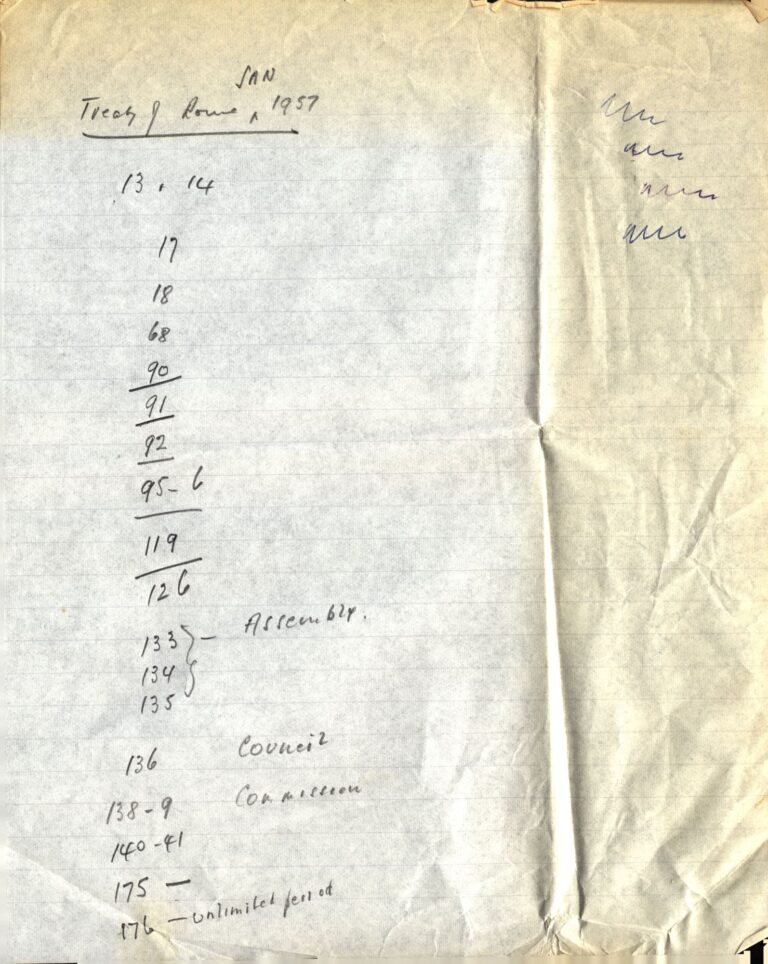 JAN
Treaty of Rome ^ 1957
13 . 14
17
18
68
90
91
92
95-6
119
126
133 } - Assembly.
134
135
136 Council
138-9 Commission
140-41
175 —
176 — unlimited period